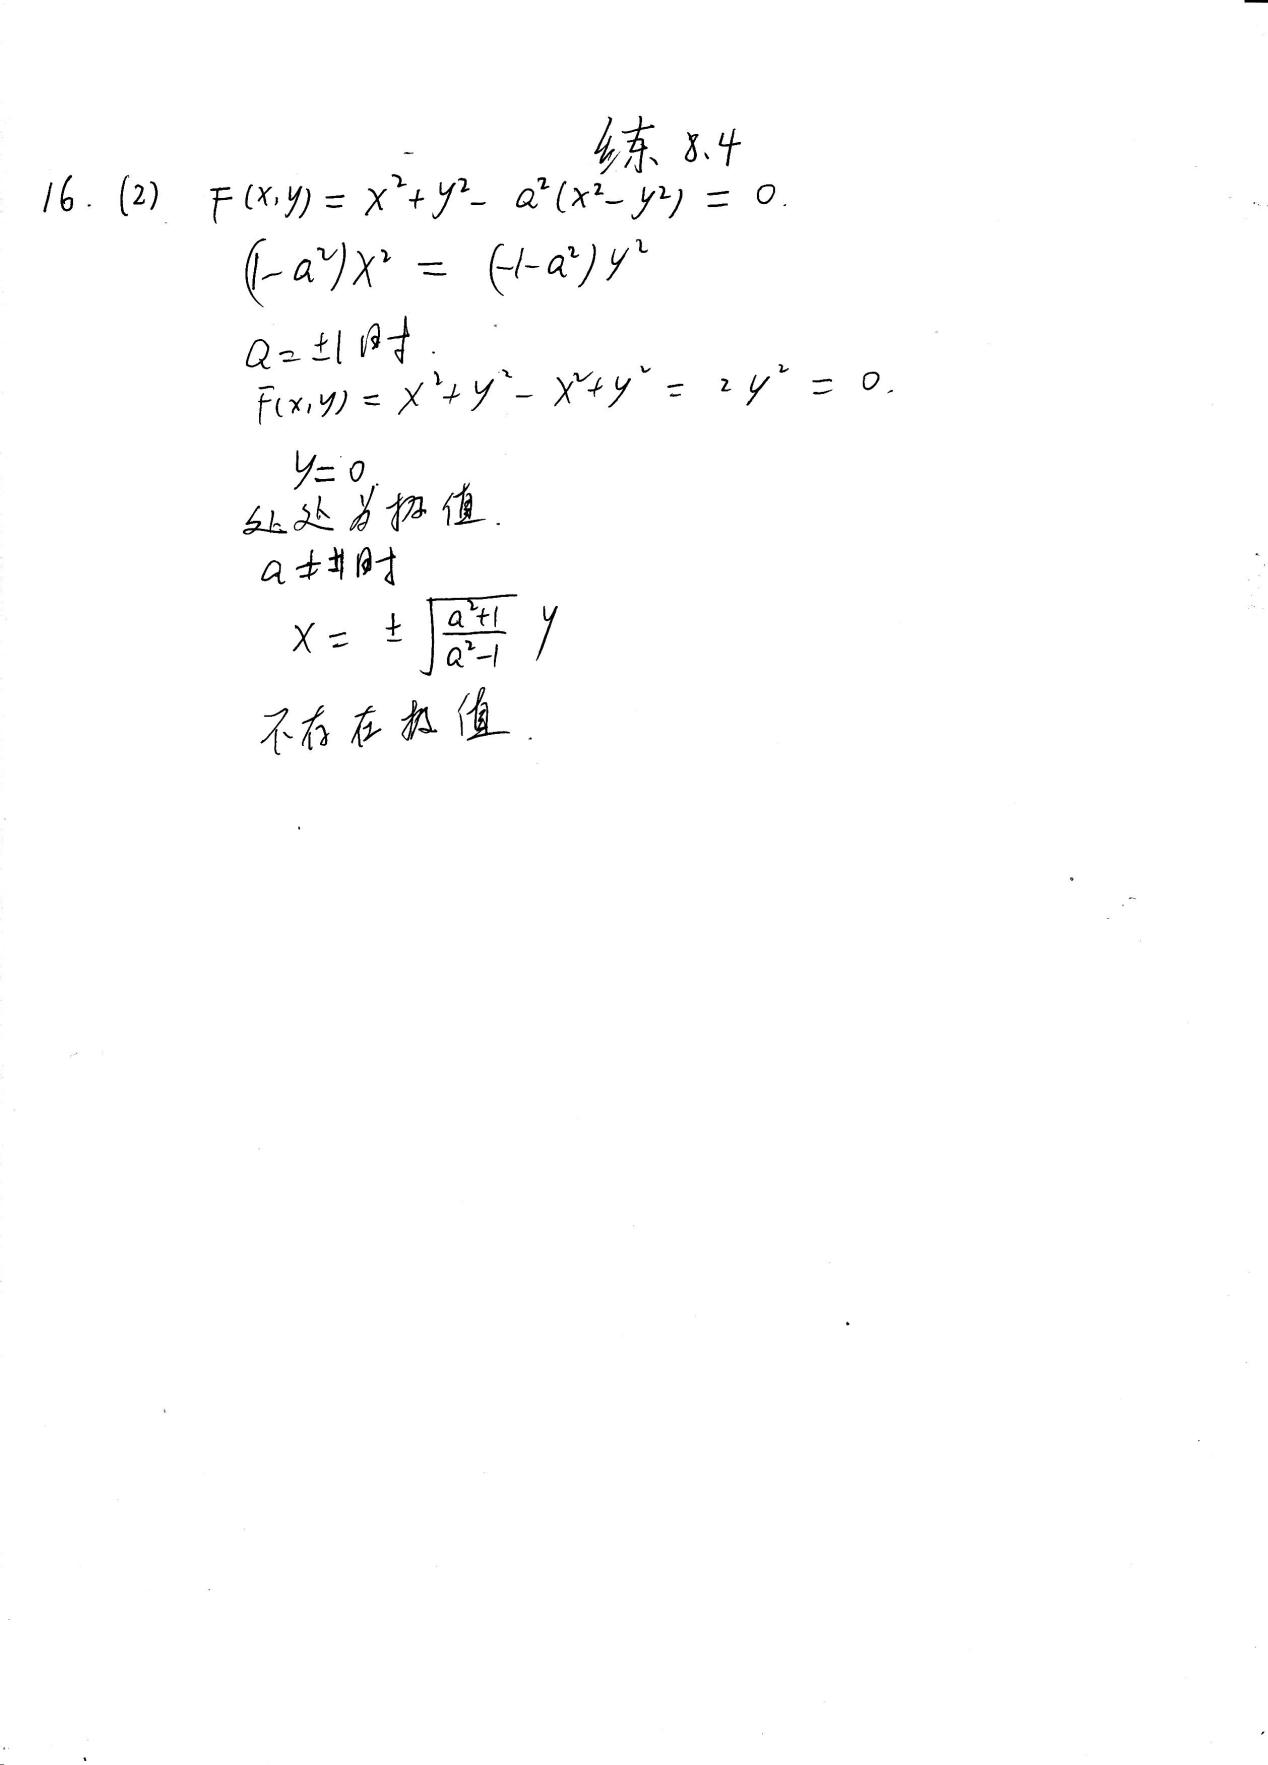 练 8.4
16. (2) F(x,y) = x²+y² - a²(x²-y²) = 0.
(1-a²)x² = (-1-a²)y²
a=±1时.
F(x,y) = x²+y² - x²+y² = 2y² = 0.
y=0.
处处为极值.
a≠±1时
x = ±√((a²+1)/(a²-1)) y
不存在极值.